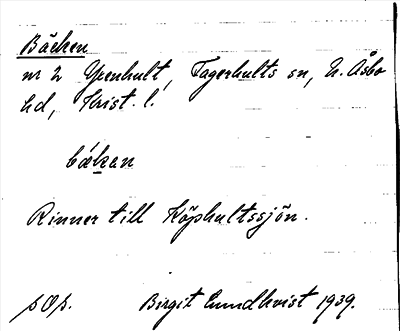 Bäcken
nr 2 Yxenhult, Fagerhults sn, N. Åsbo
hd, Krist. l.
bäkan
Rinner till Köphultssjön.
Birgit Lundkvist 1939.